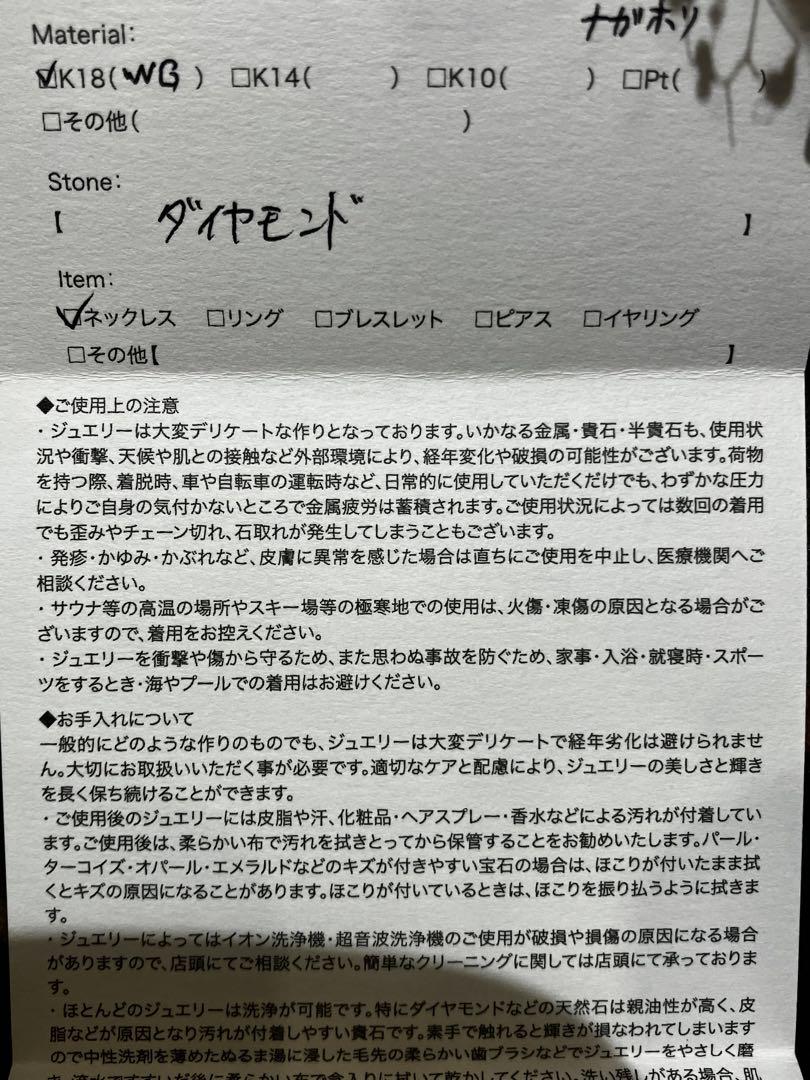 ナガホリ
Material:
☑K18(WG) □K14( ) □K10( ) □Pt( )
□その他( )
Stone:
【 ダイヤモンド 】
Item:
☑ネックレス □リング □ブレスレット □ピアス □イヤリング
□その他【 】
◆ご使用上の注意
・ジュエリーは大変デリケートな作りとなっております。いかなる金属・貴石・半貴石も、使用状
況や衝撃、天候や肌との接触など外部環境により、経年変化や破損の可能性がございます。荷物
を持つ際、着脱時、車や自転車の運転時など、日常的に使用していただくだけでも、わずかな圧力
によりご自身の気付かないところで金属疲労は蓄積されます。ご使用状況によっては数回の着用
でも歪みやチェーン切れ、石取れが発生してしまうこともございます。
・発疹・かゆみ・かぶれなど、皮膚に異常を感じた場合は直ちにご使用を中止し、医療機関へご
相談ください。
・サウナ等の高温の場所やスキー場等の極寒地での使用は、火傷・凍傷の原因となる場合がござ
いますので、着用をお控えください。
・ジュエリーを衝撃や傷から守るため、また思わぬ事故を防ぐため、家事・入浴・就寝時・スポー
ツをするとき・海やプールでの着用はお避けください。
◆お手入れについて
一般的にどのような作りのものでも、ジュエリーは大変デリケートで経年劣化は避けられませ
ん。大切にお取扱いいただく事が必要です。適切なケアと配慮により、ジュエリーの美しさと輝き
を長く保ち続けることができます。
・ご使用後のジュエリーには皮脂や汗、化粧品・ヘアスプレー・香水などによる汚れが付着してい
ます。ご使用後は、柔らかい布で汚れを拭きとってから保管することをお勧めいたします。パール・
ターコイズ・オパール・エメラルドなどのキズが付きやすい宝石の場合は、ほこりが付いたまま拭
くとキズの原因になることがあります。ほこりが付いているときは、ほこりを振り払うように拭きま
す。
・ジュエリーによってはイオン洗浄機・超音波洗浄機のご使用が破損や損傷の原因になる場合
がありますので、店頭にてご相談ください。簡単なクリーニングに関しては店頭にて承っておりま
す。
・ほとんどのジュエリーは洗浄が可能です。特にダイヤモンドなどの天然石は親油性が高く、皮
脂などが原因となり汚れが付着しやすい貴石です。素手で触れると輝きが損なわれてしまいます
ので中性洗剤を薄めたぬるま湯に浸した毛先の柔らかい歯ブラシなどでジュエリーをやさしく磨